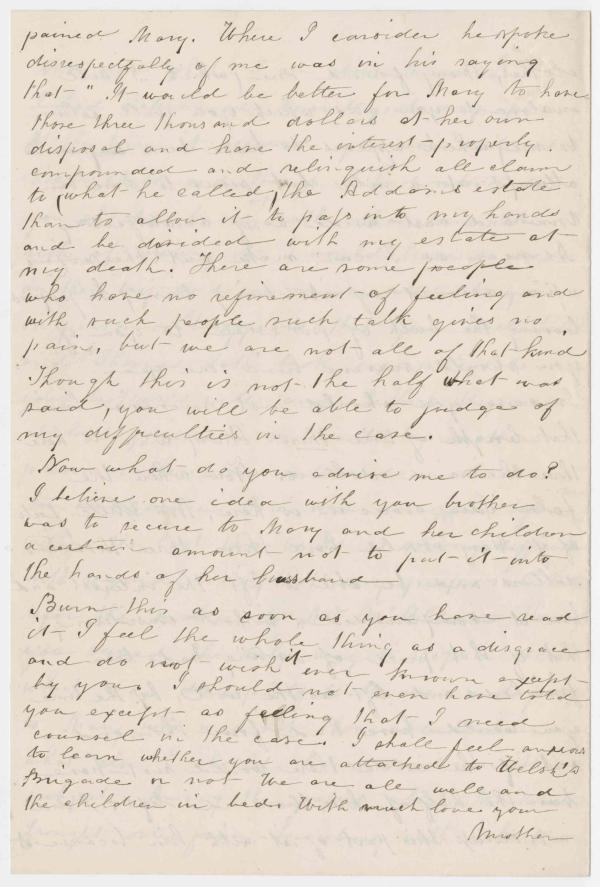 pained Mary. Where I consider he spoke
disrespectfully of me was in his saying
that "It would be better for Mary to have
those three thousand dollars at her own
disposal and have the interest properly
compounded and relinquish all claim
to (what he called) the Addams estate
than to allow it to pass into my hands
and be divided with my estate at
my death. There are some people
who have no refinement of feeling and
with such people such talk gives no
pain, but we are not all of that kind
Though this is not the half what was
said, you will be able to judge of
my difficulties in the case.
Now what do you advise me to do?
I believe one idea with you brother
was to secure to Mary and her children
a certain amount not to put it into
the hands of her husband
Burn this as soon as you have read
it I feel the whole thing as a disgrace
and do not wish it ever known except
by you. I should not even have told
you except as feeling that I need
counsel in the case. I shall feel anxious
to learn whether you are attached to Welsh's
Brigade or not We are all well and
the children in beds With much love your
Mother